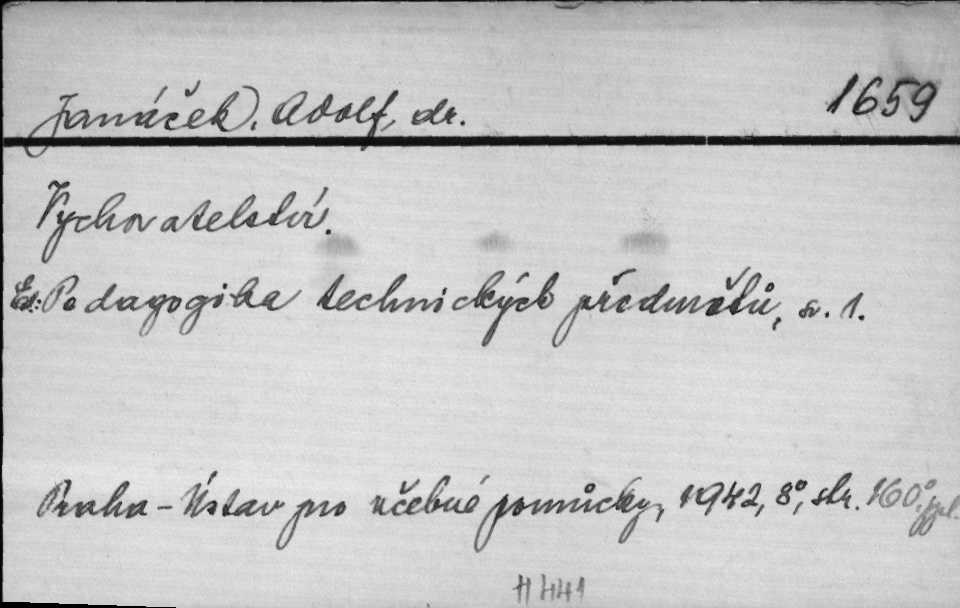 Janáček, Adolf, dr. 1659
Vychovatelství.
Ed: Pedagogika technických předmětů, sv. 1.
Praha - Ústav pro učebné pomůcky, 1942, 8°, str. 160,
H 441